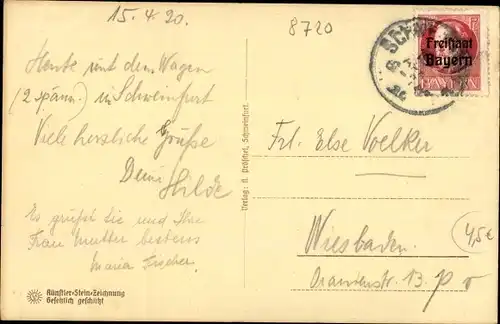 15.4.20.
8720
Heute mit dem Wagen
(2 spänn.) in Schweinfurt
Viele herzliche Grüße
Deine
Hilde
Es grüßt Sie und Ihre
Frau Mutter bestens
Maria Fischer.
Künstler-Stein-Zeichnung
Gesetzlich geschützt
Verlag: A. Pröschel, Schweinfurt.
SCH
Freistaat
Bayern
BAYERN
Frl. Else Voelker
Wiesbaden
Oranienstr. 13. P
4,5€